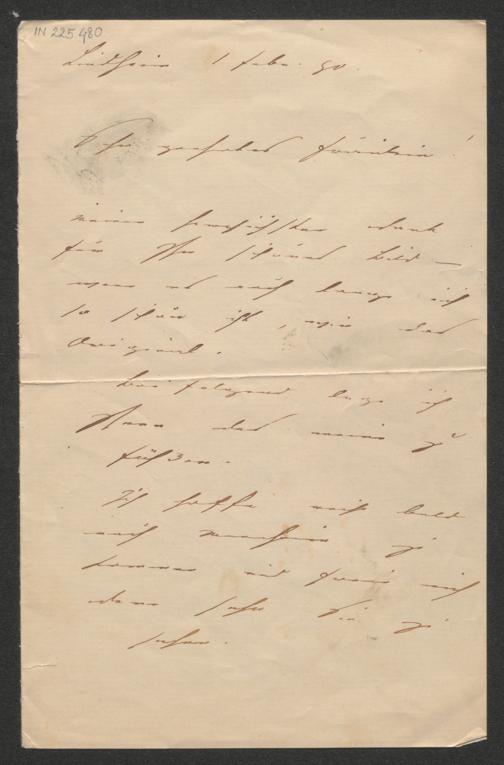 IN 225 480
Lindheim 1 Febr. 90.
Sehr geehrtes Fräulein!
meinen herzlichsten Dank
für Ihr schönes Bild —
wenn es auch lange nicht
so schön ist, wie das
Original.
Beifolgend lege ich
Ihnen das meine zu
Füßen.
Ich hoffe recht bald
nach zu
kommen und freue mich
dann sehr Sie zu
sehen.